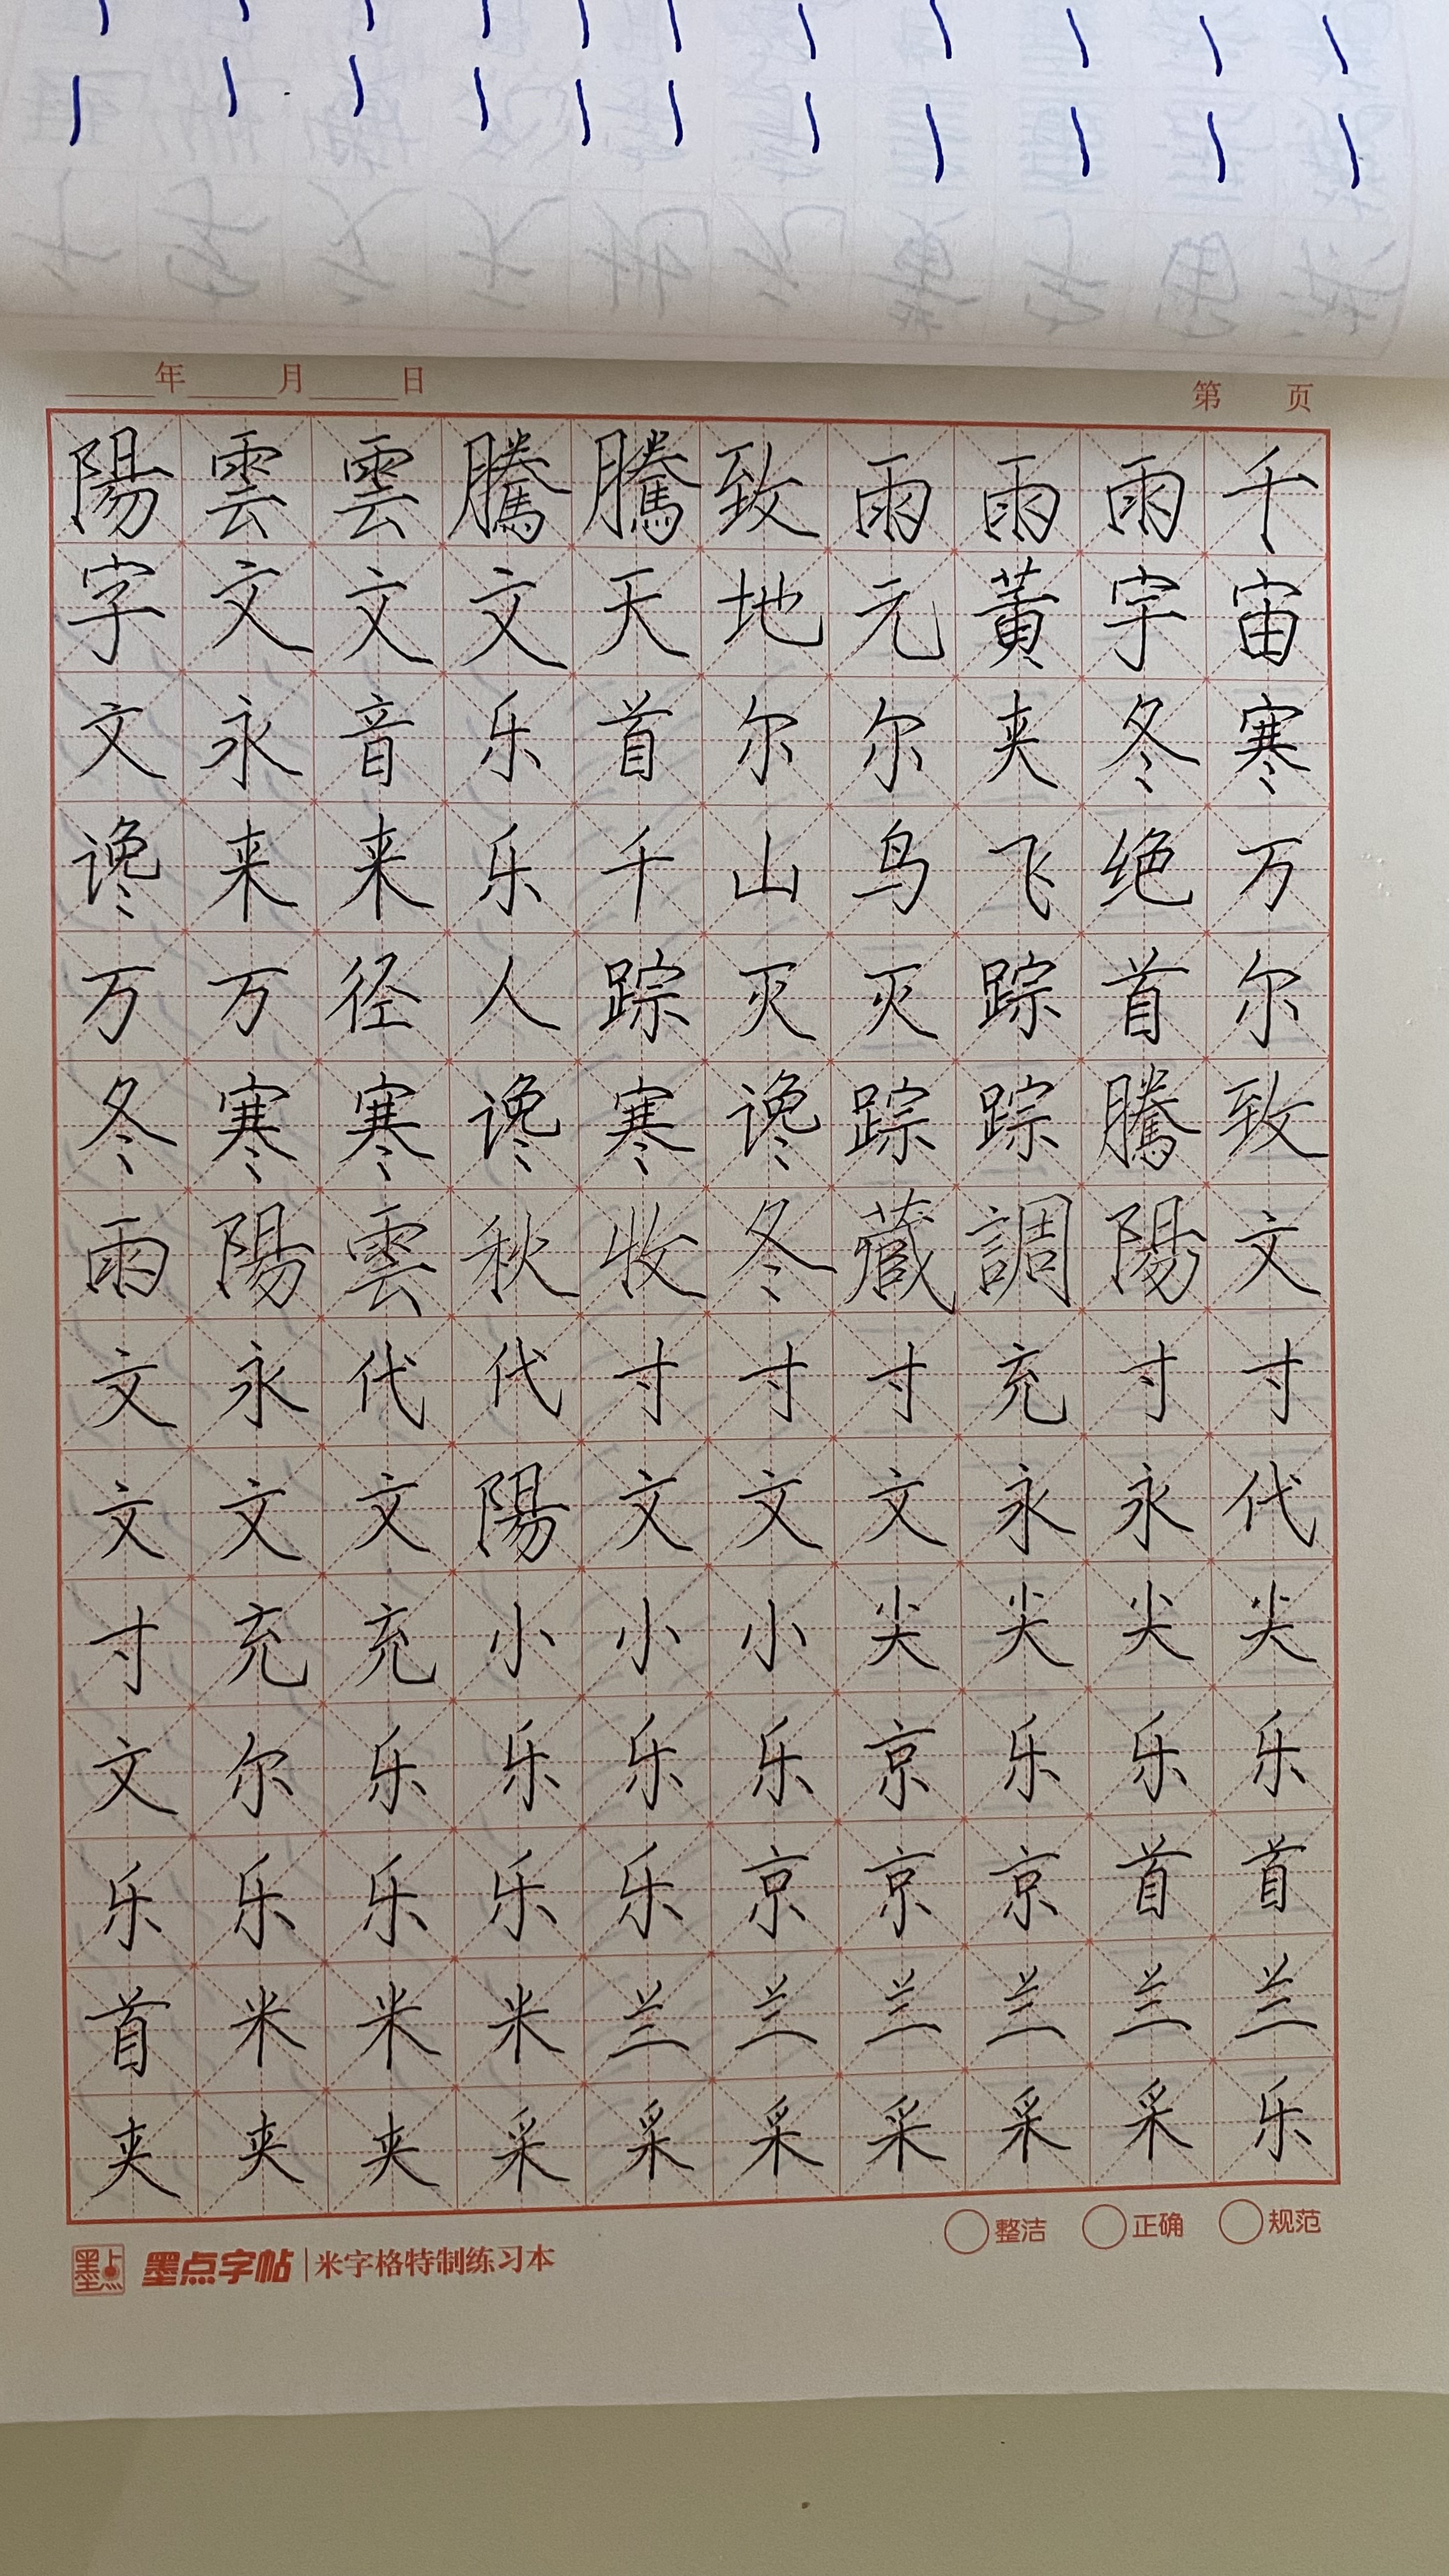 年 月 日 第 页
陽雲雲騰騰致雨雨雨千
字文文文天地元黄宇宙
文永音乐首尔尔夹冬寒
谗来来乐千山鸟飞绝万
万万径人踪灭灭踪首尔
冬寒寒谗寒谗踪踪騰致
雨陽雲秋收冬藏調陽文
文永代代寸寸寸充寸寸
文文文陽文文文永永代
寸充充小小小尖尖尖尖
文尔乐乐乐乐京乐乐乐
乐乐乐乐乐京京京首首
首米米米兰兰兰兰兰兰
夹夹夹采采采采采采乐
整洁 正确 规范
墨点 墨点字帖 米字格特制练习本